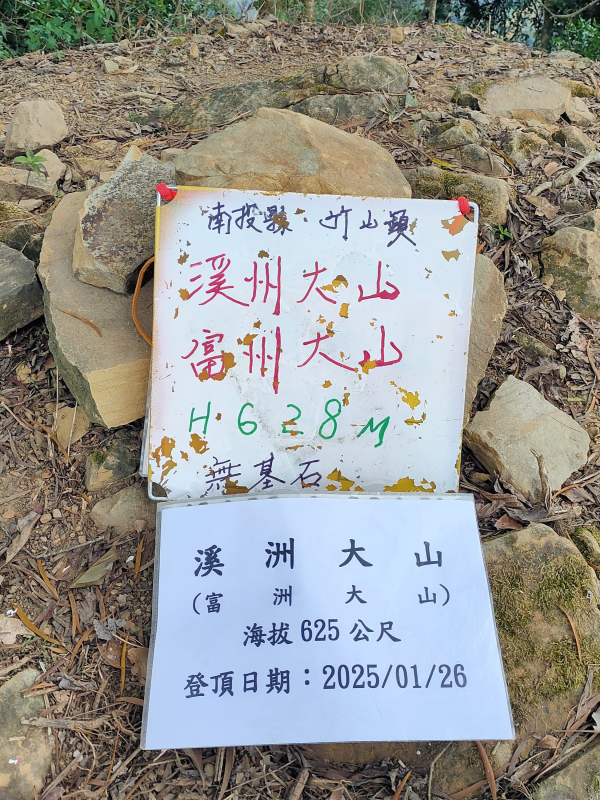 南投縣 竹山鎮
溪州大山
富州大山
H 628M
無基石
溪洲大山
(富洲大山)
海拔625公尺
登頂日期：2025/01/26